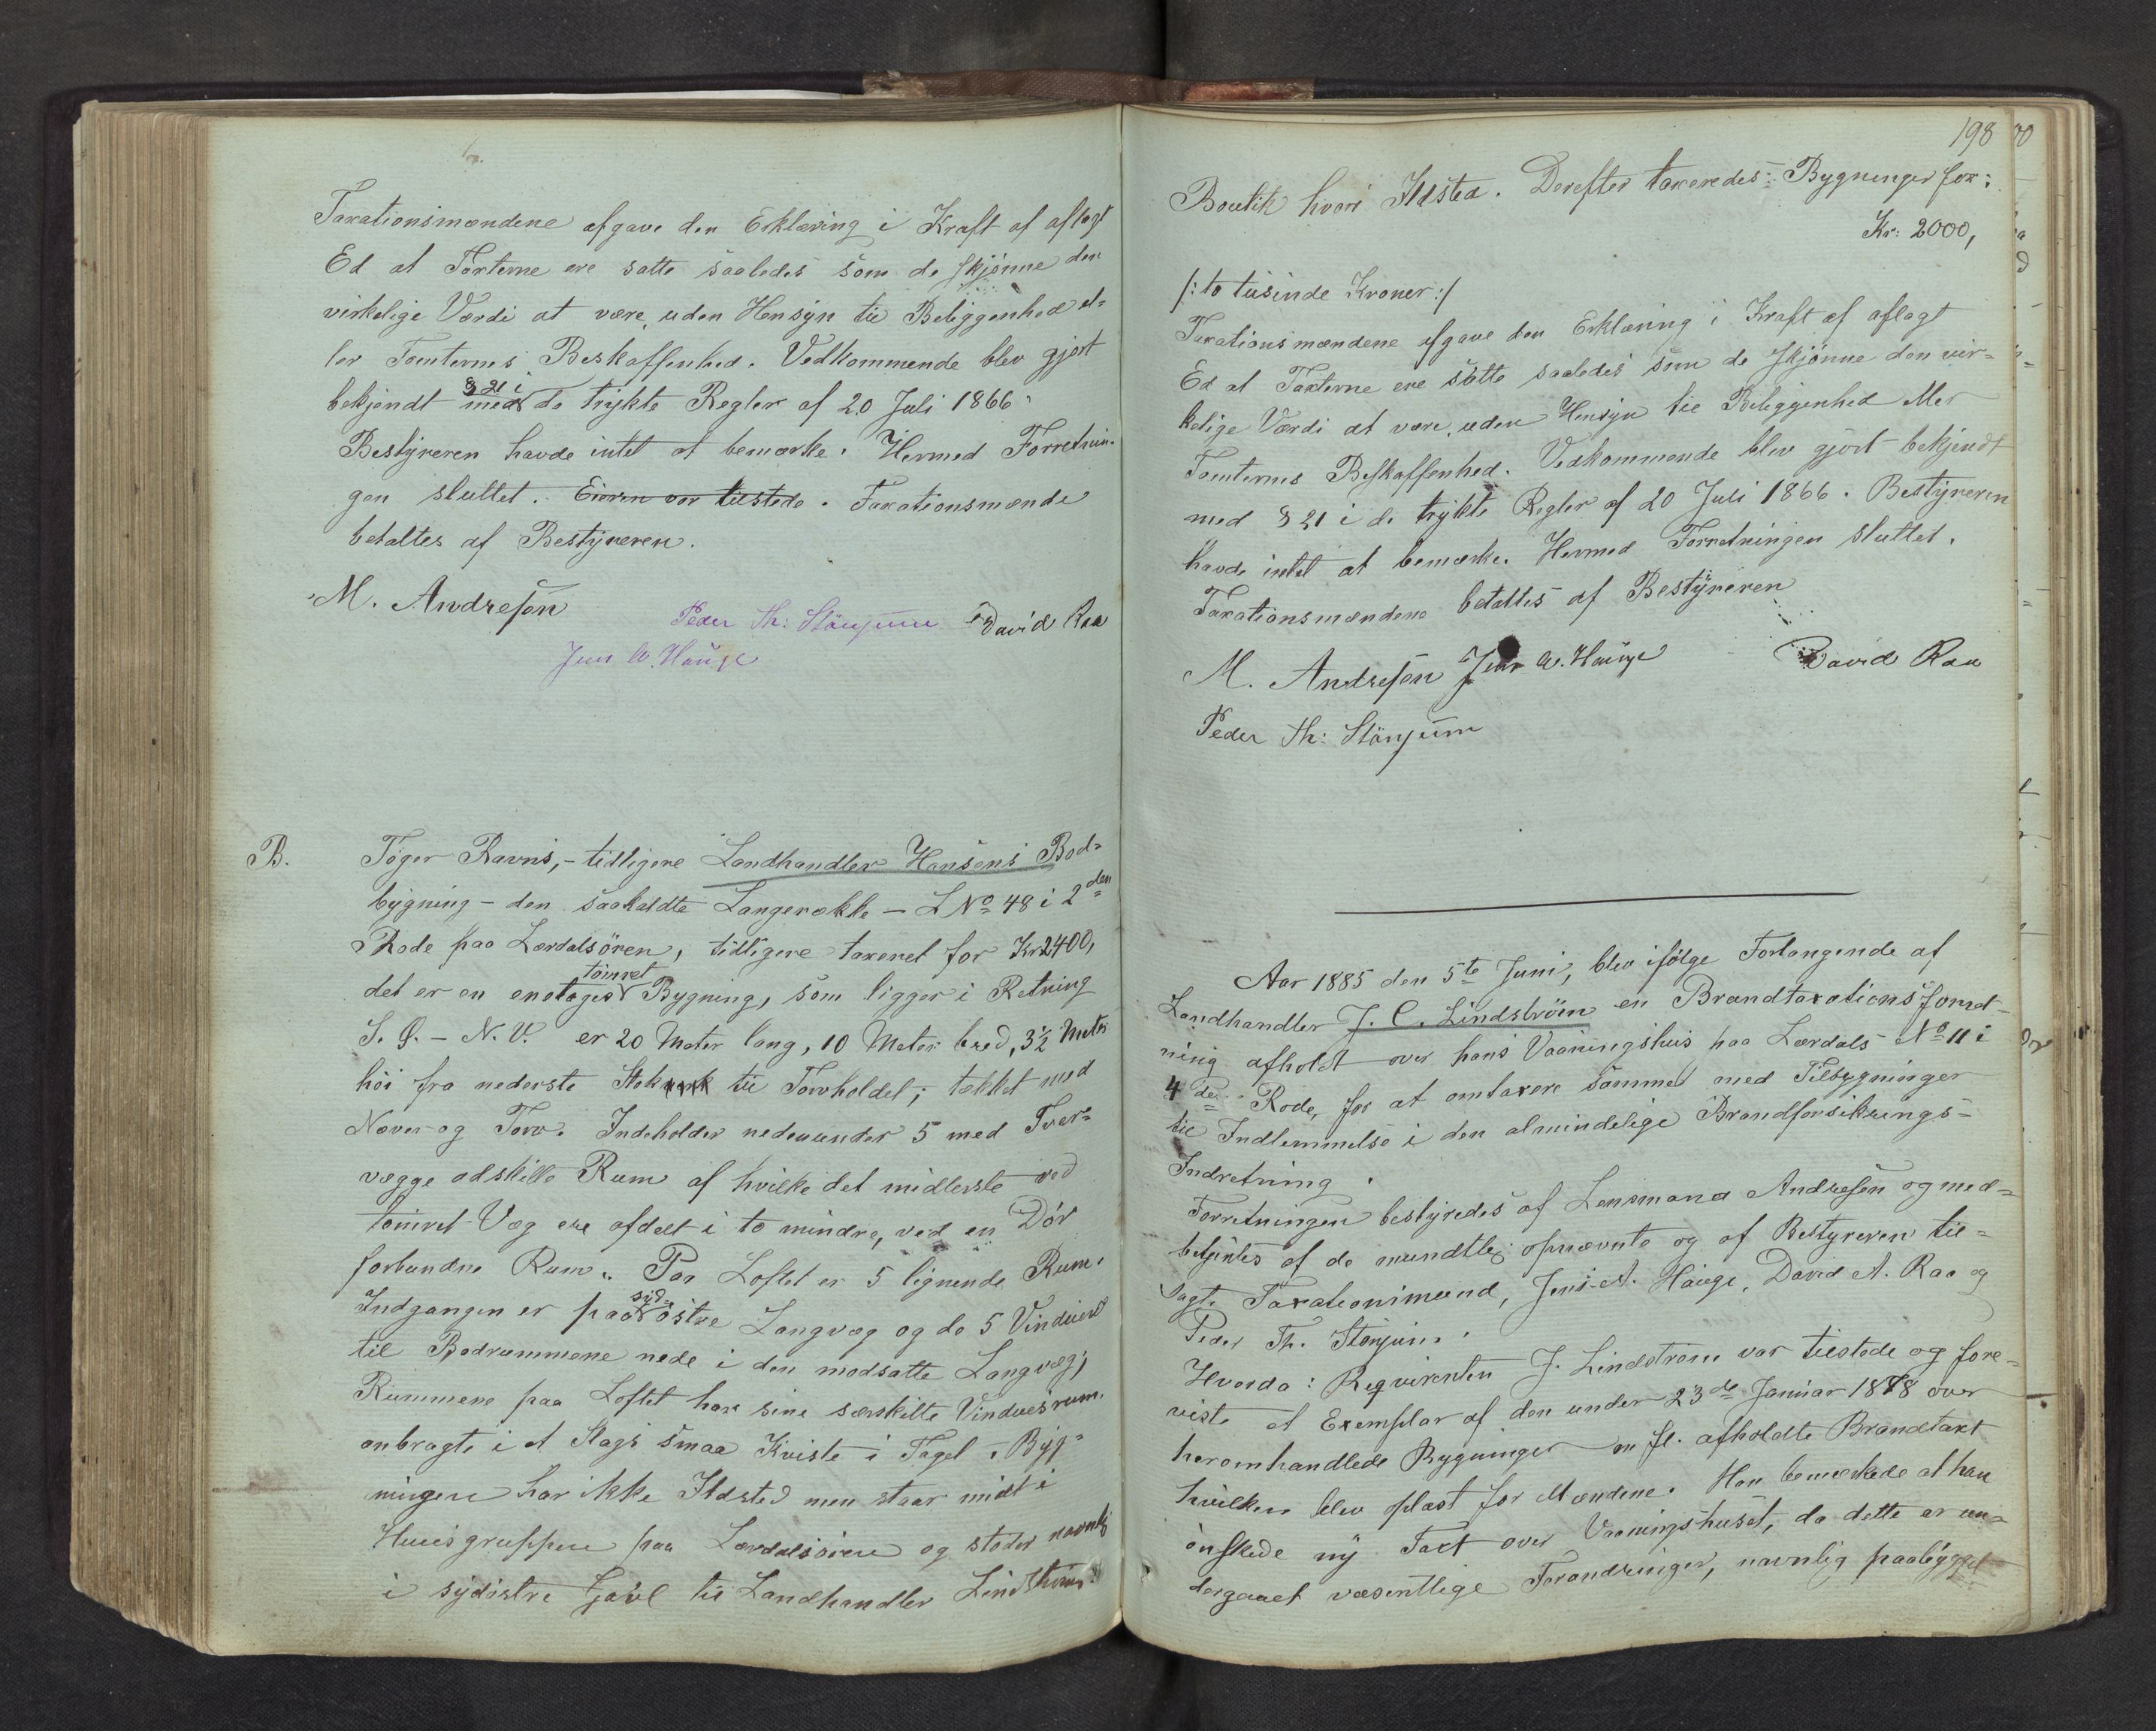 Taxationsmændene afgave den Erklæring i Kraft af aflagt
Ed at Taxterne ere satte saaledes som de skjønne den
virkelige Værdi at være, uden Hensyn til Beliggenhed el-
ler Tomternes Beskaffenhed. Vedkommende blev gjort
bekjendt med § 21 i de trykte Regler af 20 Juli 1866.
Bestyreren havde intet at bemærke. Hermed Forretnin-
gen sluttet. Eieren var tilstede. Taxationsmænde
betaltes af Bestyreren.
M. Andresen
Peder Th: Stönjum David Raa
Jens A. Hauge
B. Töger Ravns, - tidligere Landhandler Hansens Bod-
bygning - den saakaldte Langerække - L No 48 i 2den
Rode paa Lærdalsören, tidligere taxeret for Kr 2400,
det er en enetages tömret Bygning, som ligger i Retning
S. Ö. - N. V. er 20 Meter lang, 10 Meter bred, 3½ Meter
höi fra nederste Stokværk til Torvholdet; tækket med
Næver og Torv. Indeholder nedenunder 5 med Tver-
vægge adskilte Rum af hvilke det midterste ved
tömret Væg ere afdelt i to mindre, ved en Dör
forbundne Rum. Paa Loftet er 5 lignende Rum.
Indgangen er paa syd-östre Langvæg og de 5 Vinduer
til Bodrummene nede i den modsatte Langvæg;
Rummene paa Loftet har sine særskilte Vinduesrum
anbragte i et Slags smaa Kviste i Taget. Byg-
ningen har ikke Ildsted men staar midt i
Huusgruppen paa Lærdalsören og stöder navnlig
i sydöstre Gavl til Landhandler Lindströms
198
Boutik hvori Ildsted. Derefter taxeredes Bygninger for:
Kr: 2000,
/: to tusinde Kroner :/
Taxationsmændene afgave den Erklæring i Kraft af aflagt
Ed at Taxterne ere satte saaledes som de skjønne den vir-
kelige Værdi at være, uden Hensyn til Beliggenhed eller
Tomternes Beskaffenhed. Vedkommende blev gjort bekjendt
med § 21 i de trykte Regler af 20 Juli 1866. Bestyreren
havde intet at bemærke. Hermed Forretningen sluttet.
Taxationsmændene betaltes af Bestyreren
M. Andresen Jens A. Hauge David Raa
Peder Th: Stönjum
Aar 1885 den 5te Juni, blev ifölge Forlangende af
Landhandler J. C. Lindström en Brandtaxationsforret-
ning afholdt over hans Vaaningshus paa Lærdals No 11 i
4de Rode, for at omtaxere samme med Tilbygninger
til Indlemmelse i den almindelige Brandforsikrings-
Indretning.
Forretningen bestyredes af Lensmand Andresen og med-
betjentes af de mundtlig opnævnte og af Bestyreren til-
sagte Taxationsmænd, Jens A. Hauge, David A. Raa og
Peder Th. Stönjum.
Hvorda: Reqvirenten J. Lindström var tilstede og fore-
viste et Exemplar af den under 23de Januar 1878 over
heromhandlede Bygninger m fl. afholdte Brandtaxt
hvilken blev oplæst for Mændene. Han bemærkede at han
önskede ny Taxt over Vaaningshuset, da dette er un-
dergaaet væsentlige Forandringer, navnlig paabygget